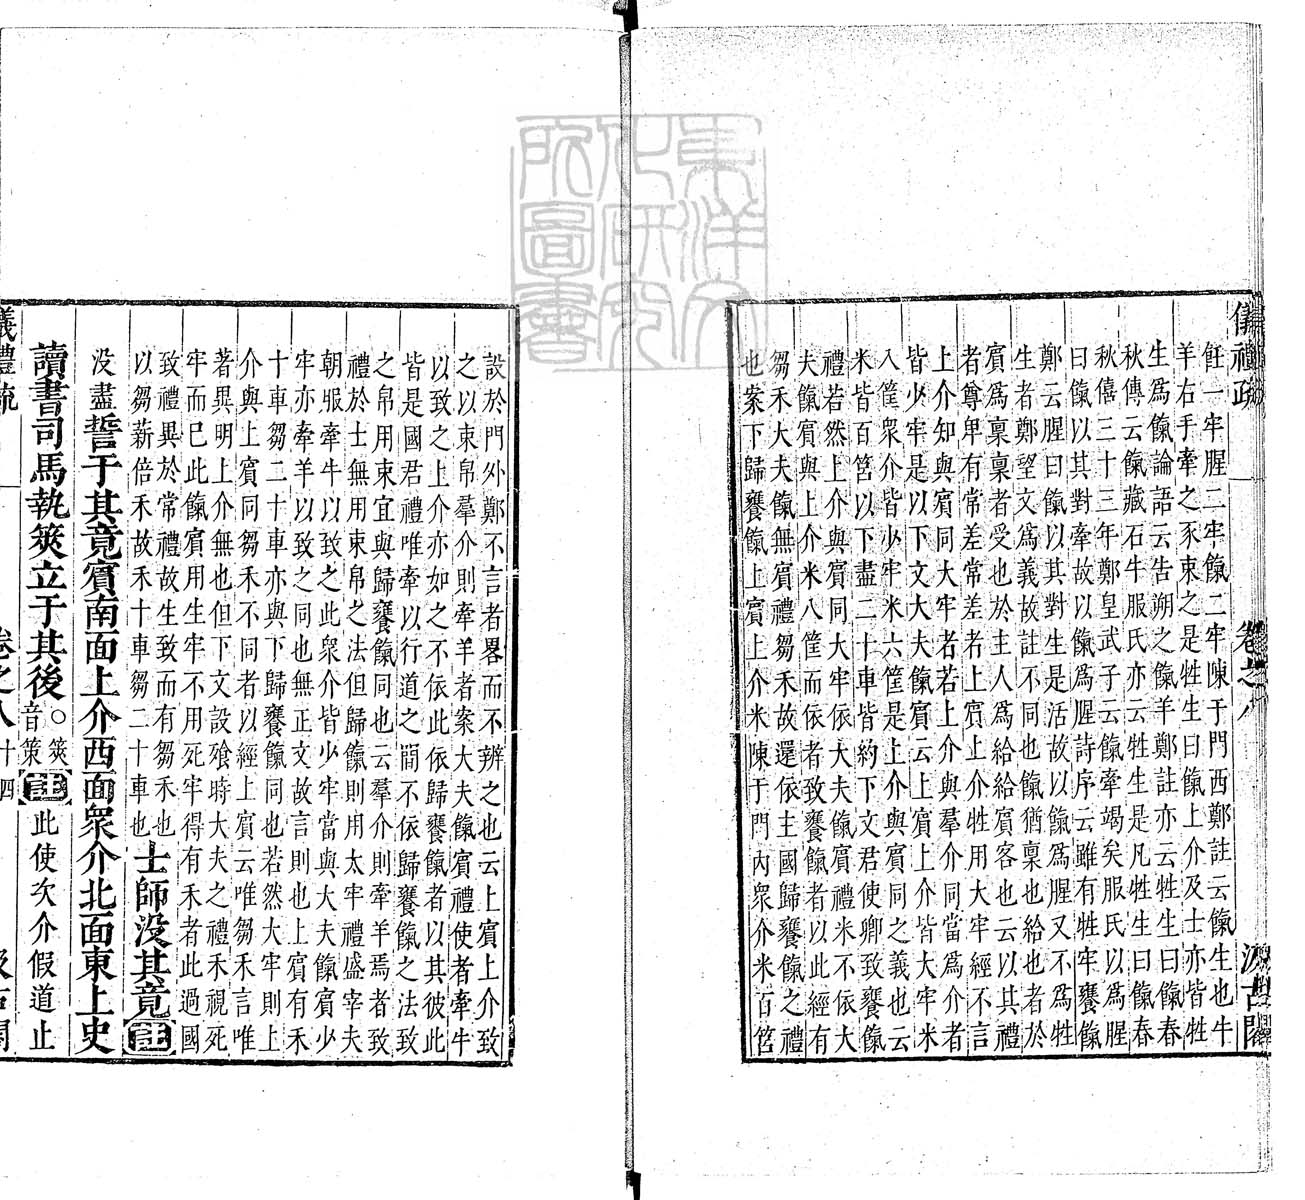 儀禮疏 卷之八 汲古閣
飪一牢腥二牢餼二牢陳于門西鄭註云餼生也牛
羊右手牽之豕束之是牲生曰餼上介及士亦皆牲
生爲餼論語云告朔之餼羊鄭註亦云牲生曰餼春
秋傳云餼藏石牛服氏亦云牲生是凡牲生曰餼春
秋僖三十三年鄭皇武子云餼牽竭矣服氏以爲腥
曰餼以其對牽故以餼爲腥詩序云雖有牲牢饔餼
鄭云腥曰餼以其對生是活故以餼爲腥又不爲牲
生者鄭望文爲義故註不同也餼猶稟也給也者於
賓爲稟稟者受也於主人爲給給賓客也云以其禮
者尊卑有常差常差者上賓上介牲用大牢經不言
上介知與賓同大牢者若上介與羣介同當爲介者
皆少牢是以下文大夫餼賓云上賓上介皆大牢米
八筐衆介皆少牢米六筐是上介與賓同之義也云
米皆百筥以下盡二十車皆約下文君使卿致饔餼
禮若然上介與賓同大牢依大夫餼賓禮米不依大
夫餼賓與上介米八筐而依者致饔餼者以此經有
芻禾大夫餼無賓禮芻禾故還依主國歸饔餼之禮
也案下歸饔餼上賓上介米陳于門內衆介米百筥
設於門外鄭不言者畧而不辨之也云上賓上介致
之以束帛羣介則牽羊者案大夫餼賓禮使者牽牛
以致之上介亦如之不依此依歸饔餼者以其彼此
皆是國君禮唯牽以行道之間不依歸饔餼之法致
之帛用束宜與歸饔餼同也云羣介則牽羊焉者致
禮於士無用束帛之法但歸餼則用太牢禮盛宰夫
朝服牽牛以致之此衆介皆少牢當與大夫餼賓少
牢亦牽羊以致之同也無正文故言則也上賓有禾
十車芻二十車亦與下歸饔餼同也若然大牢則上
介與上賓同芻禾不同者以經上賓云唯芻禾言唯
著異明上介無也但下文設飧時大夫之禮禾視死
牢而已此餼賓用生牢不用死牢得有禾者此過國
致禮異於常禮故生致而有芻禾也
以芻薪倍禾故禾十車芻二十車也 士師没其竟註
没盡誓于其竟賓南面上介西面衆介北面東上史
讀書司馬執筴立于其後○筴音策註此使次介假道止
儀禮疏 卷之八 十四 汲古閣
東洋文化研究所圖書